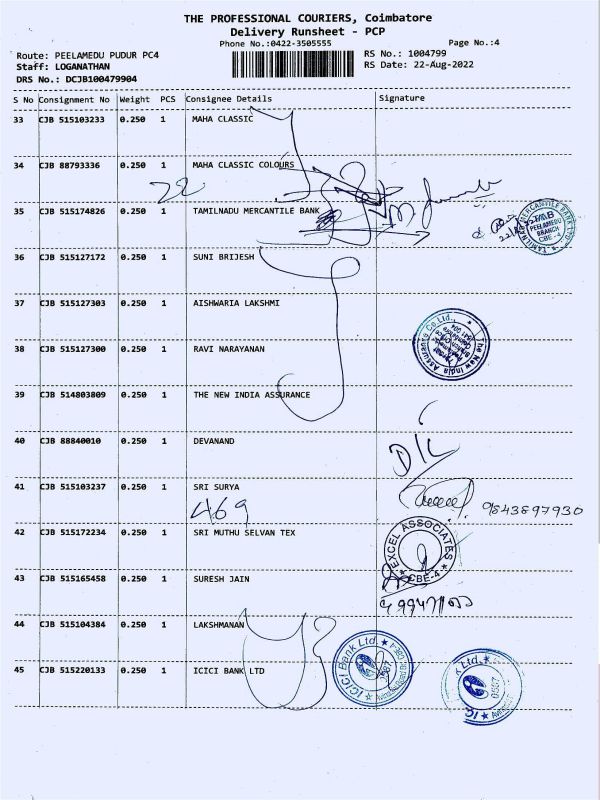 THE PROFESSIONAL COURIERS, Coimbatore
Delivery Runsheet - PCP
Phone No.:0422-3505555
Page No.:4
Route: PEELAMEDU PUDUR PC4
RS No.: 1004799
Staff: LOGANATHAN
RS Date: 22-Aug-2022
DRS No.: DCJB100479904
S No Consignment No Weight PCS Consignee Details Signature
33 CJB 515103233 0.250 1 MAHA CLASSIC
34 CJB 88793336 0.250 1 MAHA CLASSIC COLOURS
22
35 CJB 515174826 0.250 1 TAMILNADU MERCANTILE BANK
TAMILNAD MERCANTILE BANK LTD
TMB
PEELAMEDU
BRANCH
CBE-4
36 CJB 515127172 0.250 1 SUNI BRIJESH
37 CJB 515127303 0.250 1 AISHWARIA LAKSHMI
The New India Assurance Co.Ltd.
38 CJB 515127300 0.250 1 RAVI NARAYANAN
39 CJB 514803809 0.250 1 THE NEW INDIA ASSURANCE
40 CJB 88840010 0.250 1 DEVANAND
41 CJB 515103237 0.250 1 SRI SURYA
469
9843897930
42 CJB 515172234 0.250 1 SRI MUTHU SELVAN TEX
EXCEL ASSOCIATES
CBE-4
43 CJB 515165458 0.250 1 SURESH JAIN
44 CJB 515104384 0.250 1 LAKSHMANAN
ICICI Bank Ltd.
45 CJB 515220133 0.250 1 ICICI BANK LTD
Bank Ltd.